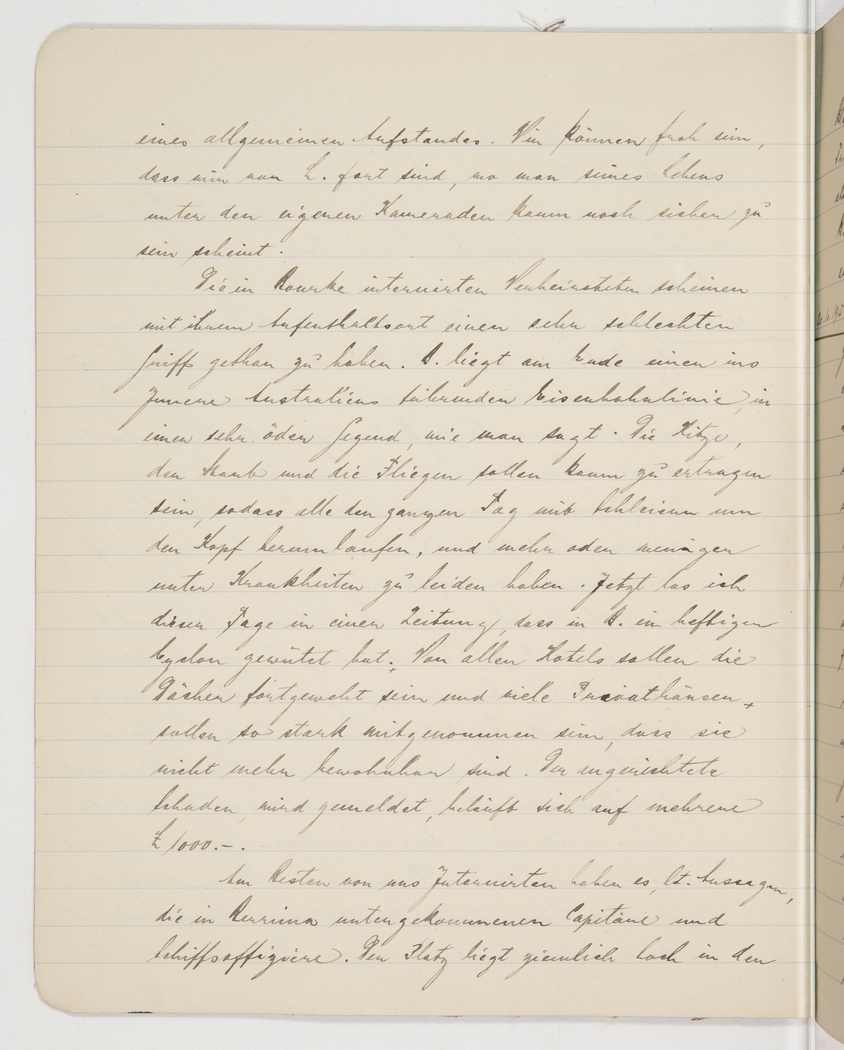 eines allgemeinen Aufstandes. Wir können froh sein,
dass wir von L. fort sind, wo man seines Lebens
unter den eigenen Kameraden kaum noch sicher zu
sein scheint.
Die in Bourke internirten Verheirateten scheinen
mit ihrem Aufenthaltsort einen sehr schlechten
Griff gethan zu haben. B. liegt am Ende einer ins
Innere Australiens führenden Eisenbahnlinie, in
einer sehr öden Gegend, wie man sagt. Die Hitze,
der Staub und die Fliegen sollen kaum zu ertragen
sein, sodass alle den ganzen Tag mit Schleiern um
den Kopf herumlaufen, und mehr oder weniger
unter Krankheiten zu leiden haben. Jetzt las ich
dieser Tage in einer Zeitung, dass in B. ein heftiger
Cyclon gewütet hat. Von allen Hotels sollen die
Dächer fortgeweht sein und viele Privathäuser
sollen so stark mitgenommen sein, dass sie
nicht mehr bewohnbar sind. Der angerichtete
Schaden, wird gemeldet, beläuft sich auf mehrere
£ 1000.-.
Am Besten von uns Internirten haben es, lt. Aussagen,
die in Berrima untergekommenen Capitäne und
Schiffsoffiziere. Der Platz liegt ziemlich hoch in den